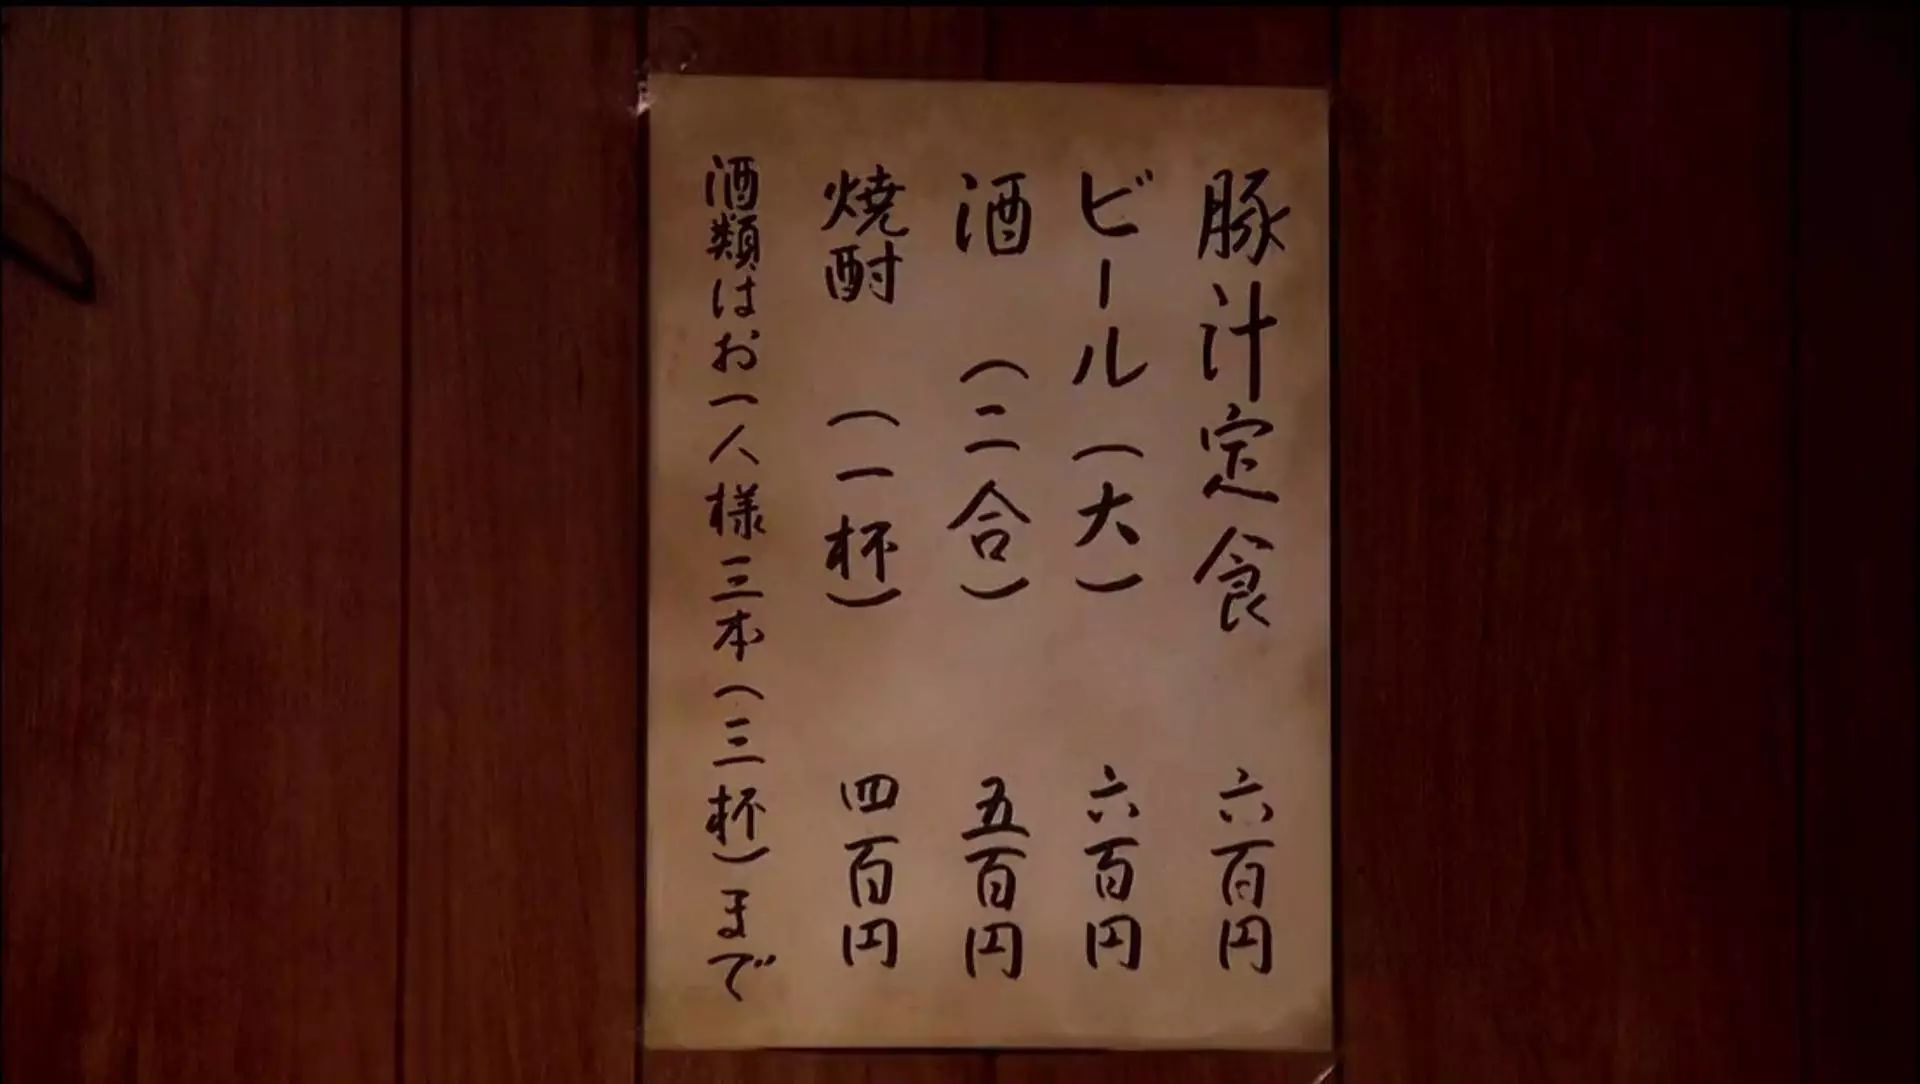 豚汁定食 六百円
ビール(大) 六百円
酒 (二合) 五百円
焼酎 (一杯) 四百円
酒類はお一人様三本(三杯)まで